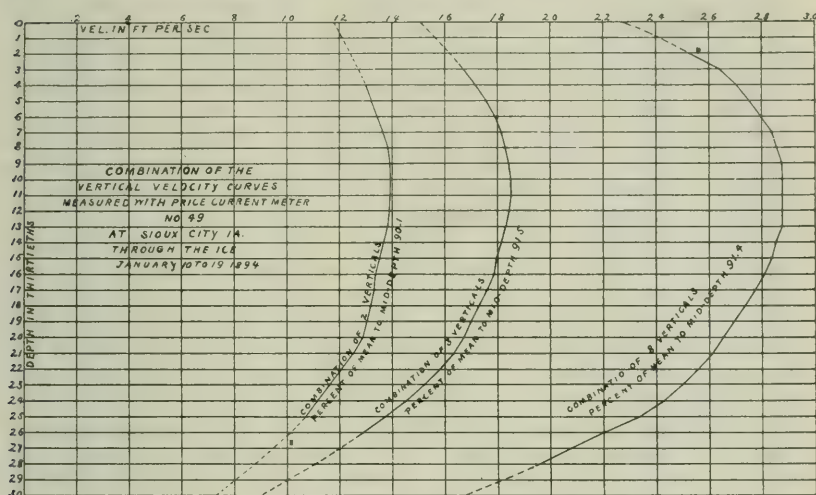 .2 .4 .6 .8 1.0 1.2 1.4 1.6 1.8 2.0 2.2 2.4 2.6 2.8 3.0
VEL. IN FT PER SEC
0
1
2
3
4
5
6
7
8
9
10
11
12
13
14
15
16
17
18
19
20
21
22
23
24
25
26
27
28
29
30
DEPTH IN THIRTIETHS
COMBINATION OF THE
VERTICAL VELOCITY CURVES
MEASURED WITH PRICE CURRENT METER
NO 49
AT SIOUX CITY IA.
THROUGH THE ICE
JANUARY 10 TO 19 1894
COMBINATION OF 2 VERTICALS
PERCENT OF MEAN TO MID-DEPTH 90.1
COMBINATION OF 3 VERTICALS
PERCENT OF MEAN TO MID-DEPTH 91.5
COMBINATIO OF 8 VERTICALS
PERCENT OF MEAN TO MID-DEPTH 91.4